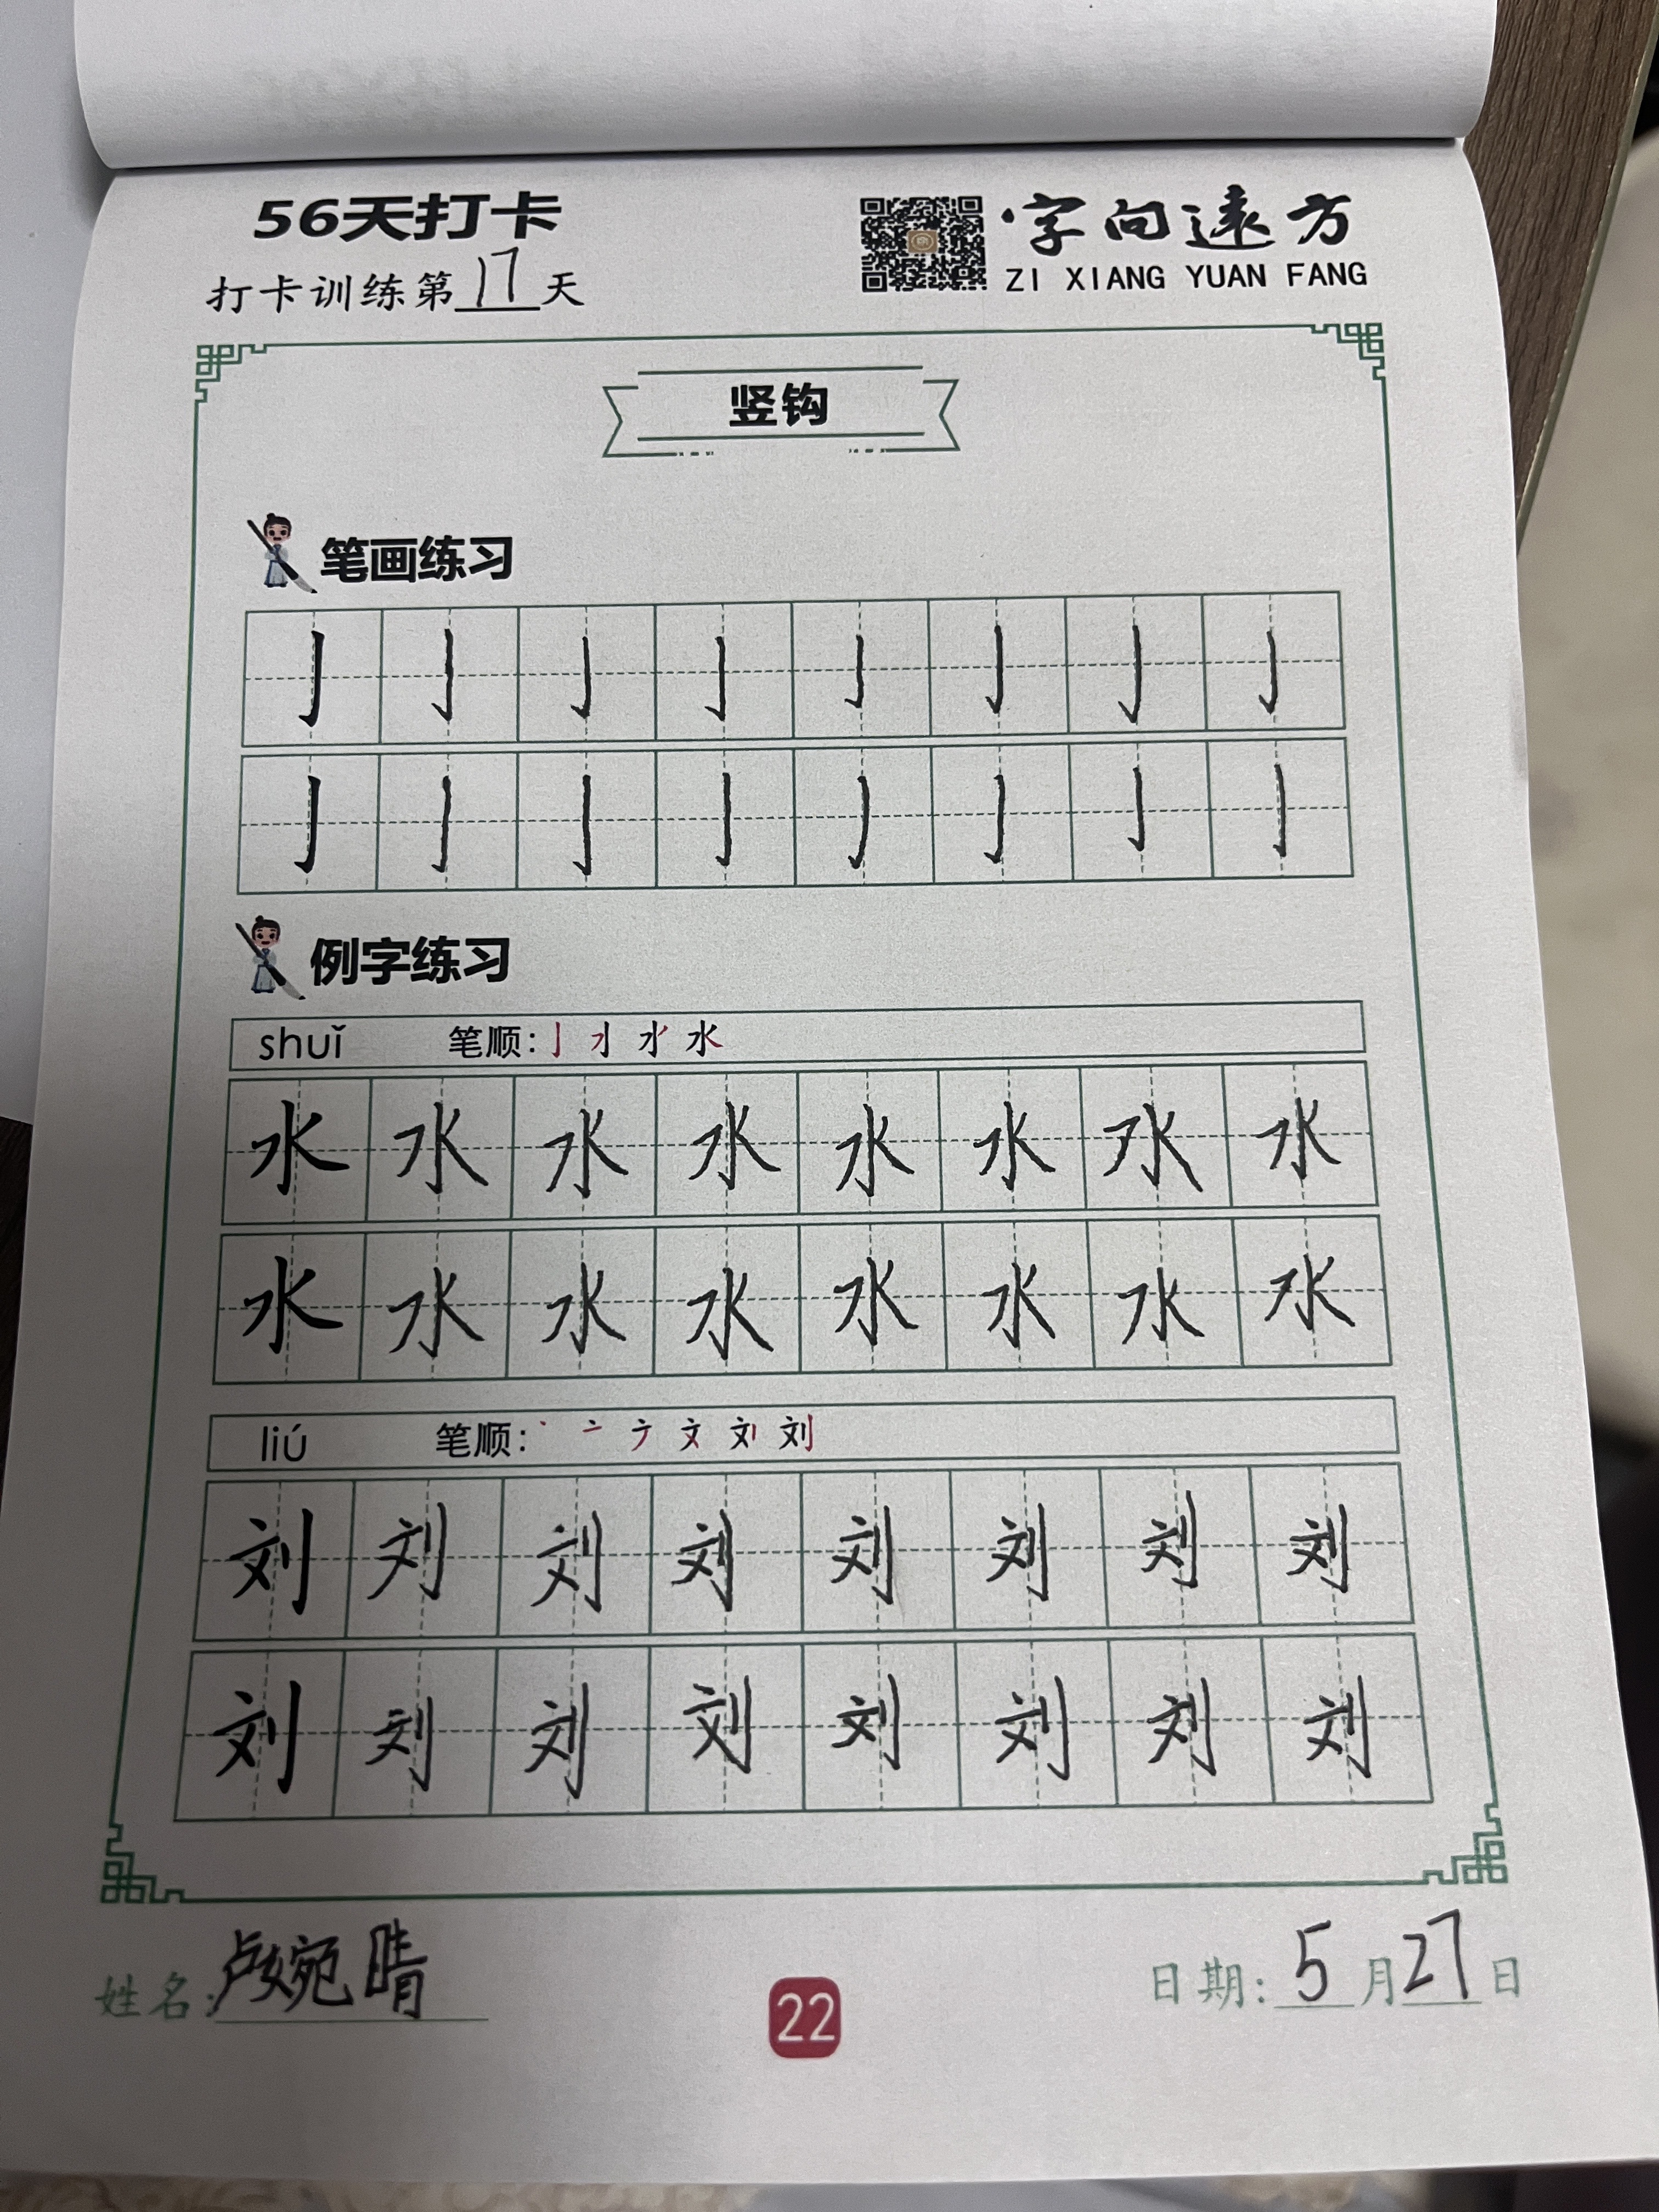 56天打卡
字向远方
打卡训练第17天
ZI XIANG YUAN FANG
竖钩
笔画练习
亅亅亅亅亅亅亅亅
亅亅亅亅亅亅亅亅
例字练习
shuǐ 笔顺:
水水水水水水水水
水水水水水水水水
liú 笔顺:
刘刘刘刘刘刘刘刘
刘刘刘刘刘刘刘刘
姓名:卢婉晴
22
日期:5月27日